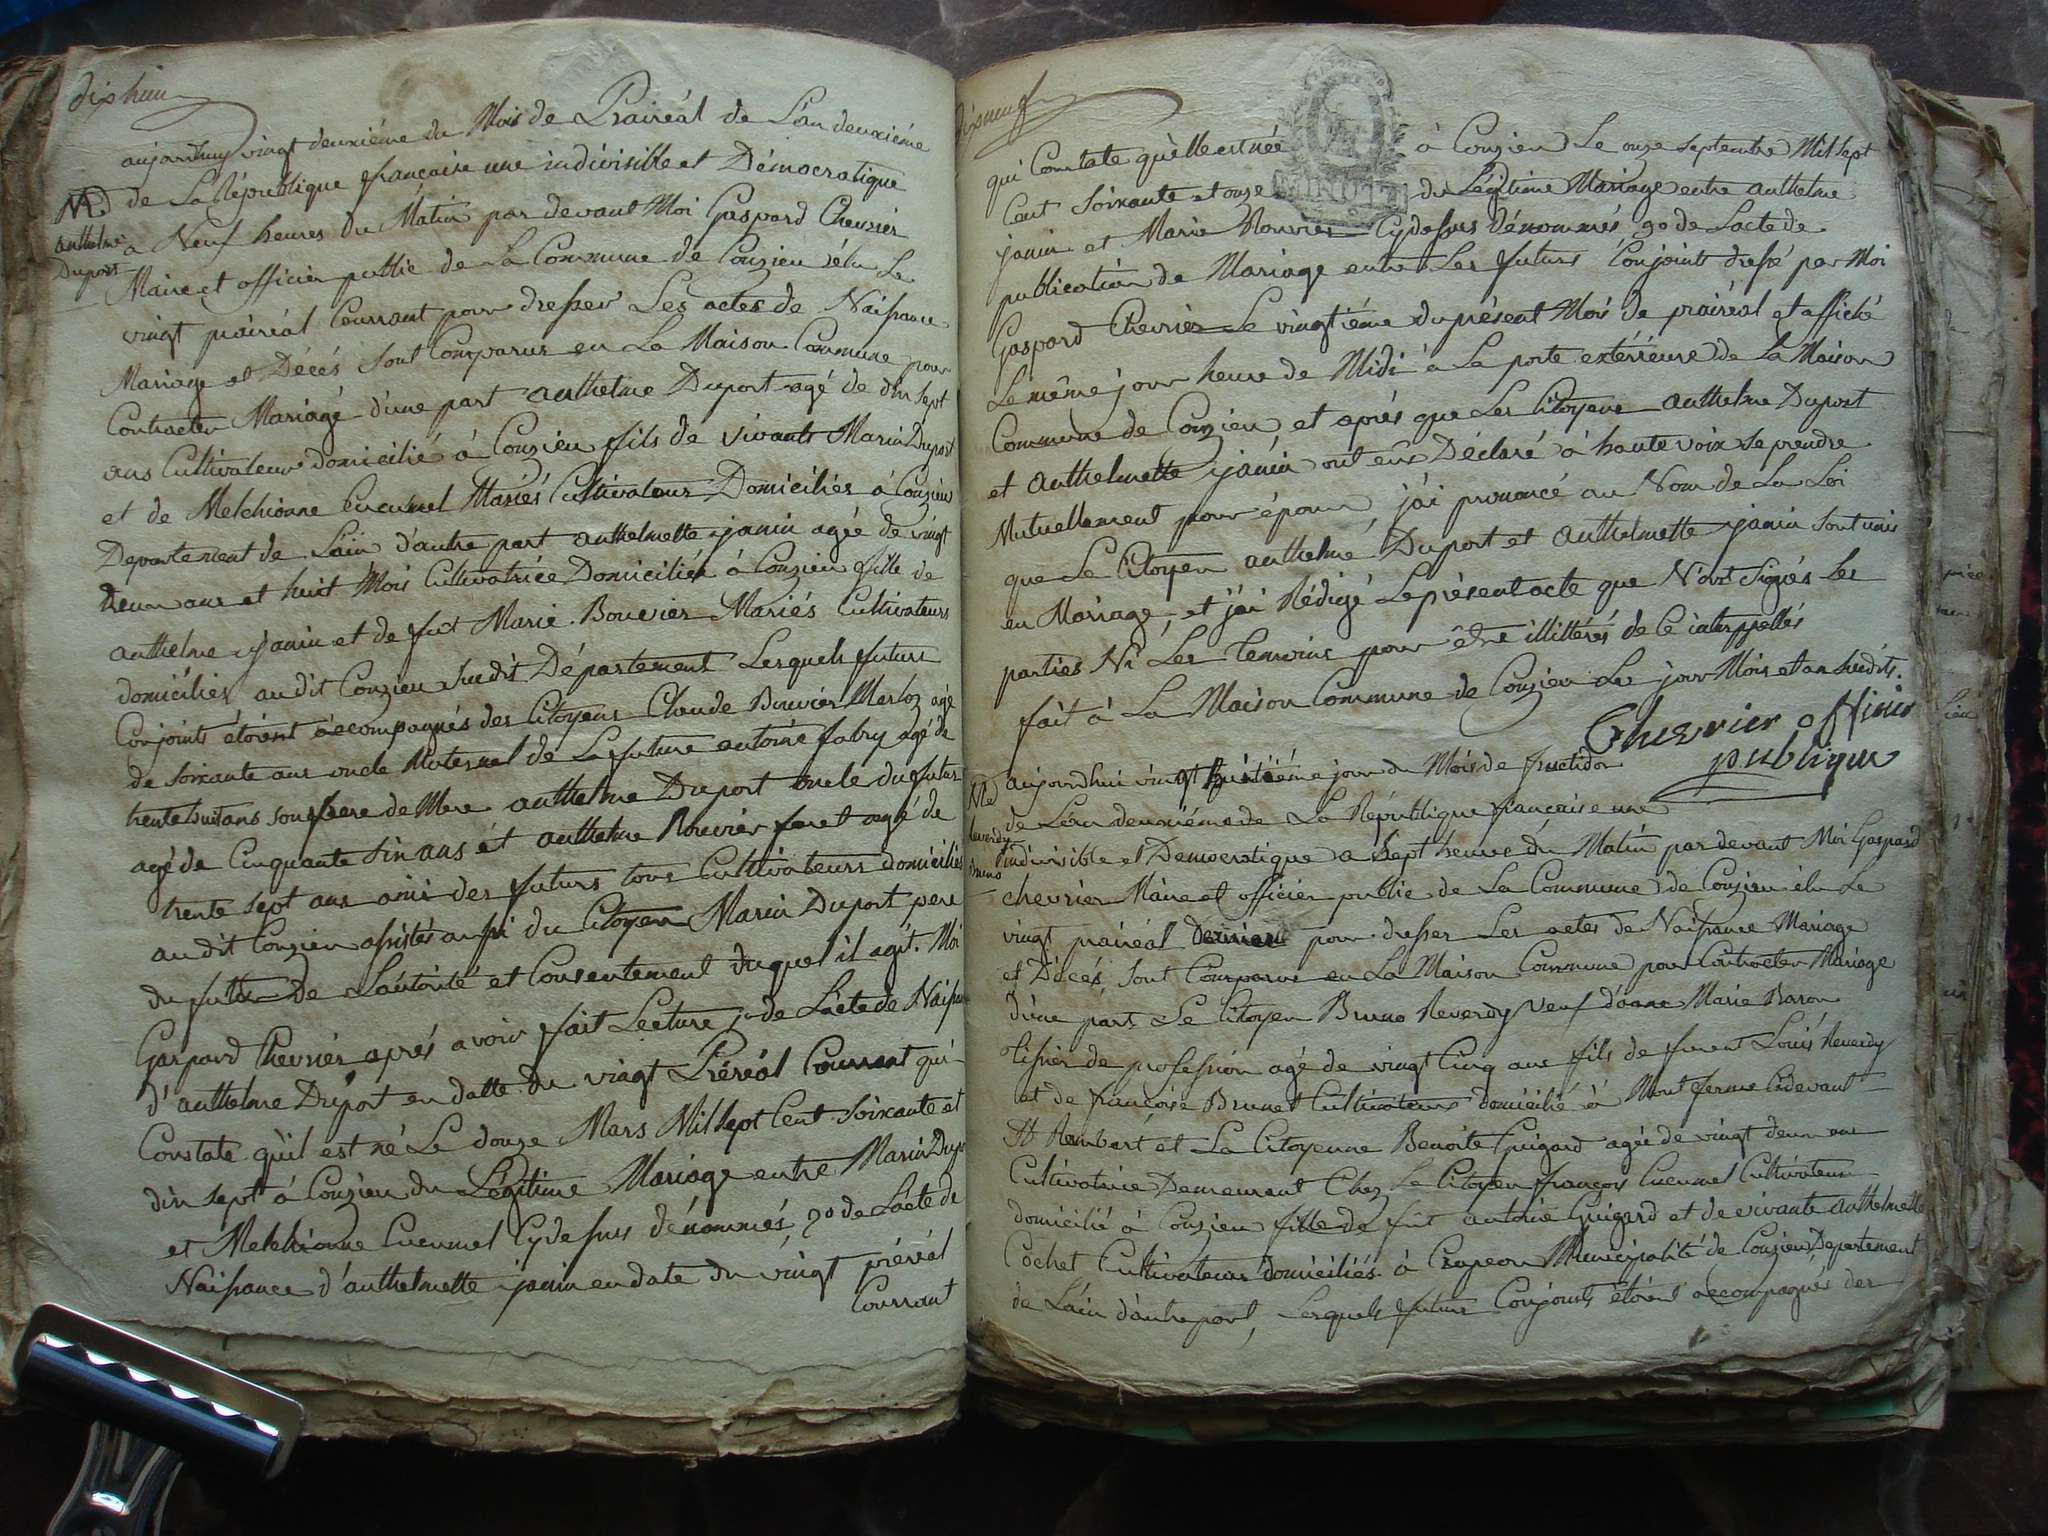 dix huit
aujourdhuy vingt deuxiéme du Mois de Prairéal de L'an deuxiéme
de La République française une indivisible et Démocratique
Md
anthelme
Duport
a Neuf heures du Mâtin par devant Moi Gaspard Chevrier
Maire et officier public de La Commune de Conzieu élu Le
vingt prairéal Courrant pour dresser Les actes de Naissance
Mariage et Décés sont Comparus en La Maison Commune pour
Contracter Mariagé d'une part anthelme Duport agé de dix sept
ans Cultivateur domicilié à Conzieu fils de vivants Marin Duport
et de Melchionne Cucumel Mariés Cultivateurs Domiciliés à Conzieu
Departement de L'ain d'autre part anthelmette janin agée de vingt
deux ans et huit Mois Cultivatrice Domiciliée à Conzieu fille de
anthelme janin et de fut Marie Bouvier Mariés Cultivateurs
domiciliés audit Conzieu susdit Département Lesquels futurs
Conjoints étoient accompagnés des Citoyens Claude Bouvier Merloz agé
de soixante ans oncle Maternel de La future antoine fabry agé de
trente huit ans son frere de Mere anthelme Duport oncle du futur
agé de Cinquante six ans et anthelme Bouvier foret agé de
trente sept ans ami des futurs tous Cultivateurs domiciliés
audit Conzieu assistés aussi du Citoyen Marin Duport pere
du futur De L'autorité et Consentement duquel il agit. Moi
Gaspard Chevrier aprés avoir fait Lecture 1o de L'acte de Naissance
d'anthelme Duport en datte du vingt Préréal Courrant qui
Constate qu'il est né Le douze Mars Mil Sept Cent Soixante et
dix sept à Conzieu du Légitime Mariage entre Marin Duport
et Melchionne Cucumel Cy dessus dénommés, 2o de L'acte de
Naissance d'anthelmette janin en date du vingt préréal
Courrant
dixneuf
qui Constate qu'elle est née à Conzieu Le onze Septembre Mil Sept
Cent Soixante et onze du Légitime Mariage entre anthelme
janin et Marie Bouvier Cy dessus dénommés 3o de L'acte de
publication de Mariage entre Les futurs Conjoints dressé par Moi
Gaspard Chevrier Le vingtiéme du présent Mois de prairéal et affiché
Le même jour heure de Midi à La porte extérieure de La Maison
Commune de Conzieu, et aprés que Les Citoyens anthelme Duport
et anthelmette janin ont eûs Déclaré à haute voix se prendre
Mutuellement pour époux, j'ai prononcé au Nom de La Loi
que Le Citoyen anthelme Duport et anthelmette janin sont unis
en Mariage, et j'ai Rédigé Le présent acte que N'ont Signés Les
parties Ni Les temoins pour être illittérés de Ce interppellés
fait à La Maison Commune de Conzieu Les jour Mois et an susdits.
Chevrier officier
publique
Md
Reverdy
Bruno
aujourdhui vingt huitiéme jour du Mois de fructidor
de L'an deuxiéme de La République française une
indivisible et Démocratique a Sept heures du Matin par devant Moi Gaspard
chevrier Maire et officier public de La Commune de Conzieu élu Le
vingt prairéal Dernier pour dresser Les actes de Naissance Mariage
et Décés, sont Comparus en La Maison Commune pour Contracter Mariage
d'une part Le Citoyen Bruno Reverdy veuf d'anne Marie Baron
tissier de profession agé de vingt Cinq ans fils de furent Louis Reverdy
et de françoise Brunet Cultivateurs domicilié à Mont ferme Cidevant
St Rambert et La Citoyenne Benoite Guigard agée de vingt deux ans
Cultivatrice Demeurant Chez Le Citoyen françois Cucumel Cultivateur
domicilié à Conzieu fille de fut antoine Guigard et de vivante anthelmette
Cochet Cultivateurs domiciliés à Crapeou Municipalité de Conzieu Departement
de L'ain d'autre part, Lesquels futurs Conjoints étoient accompagnés des